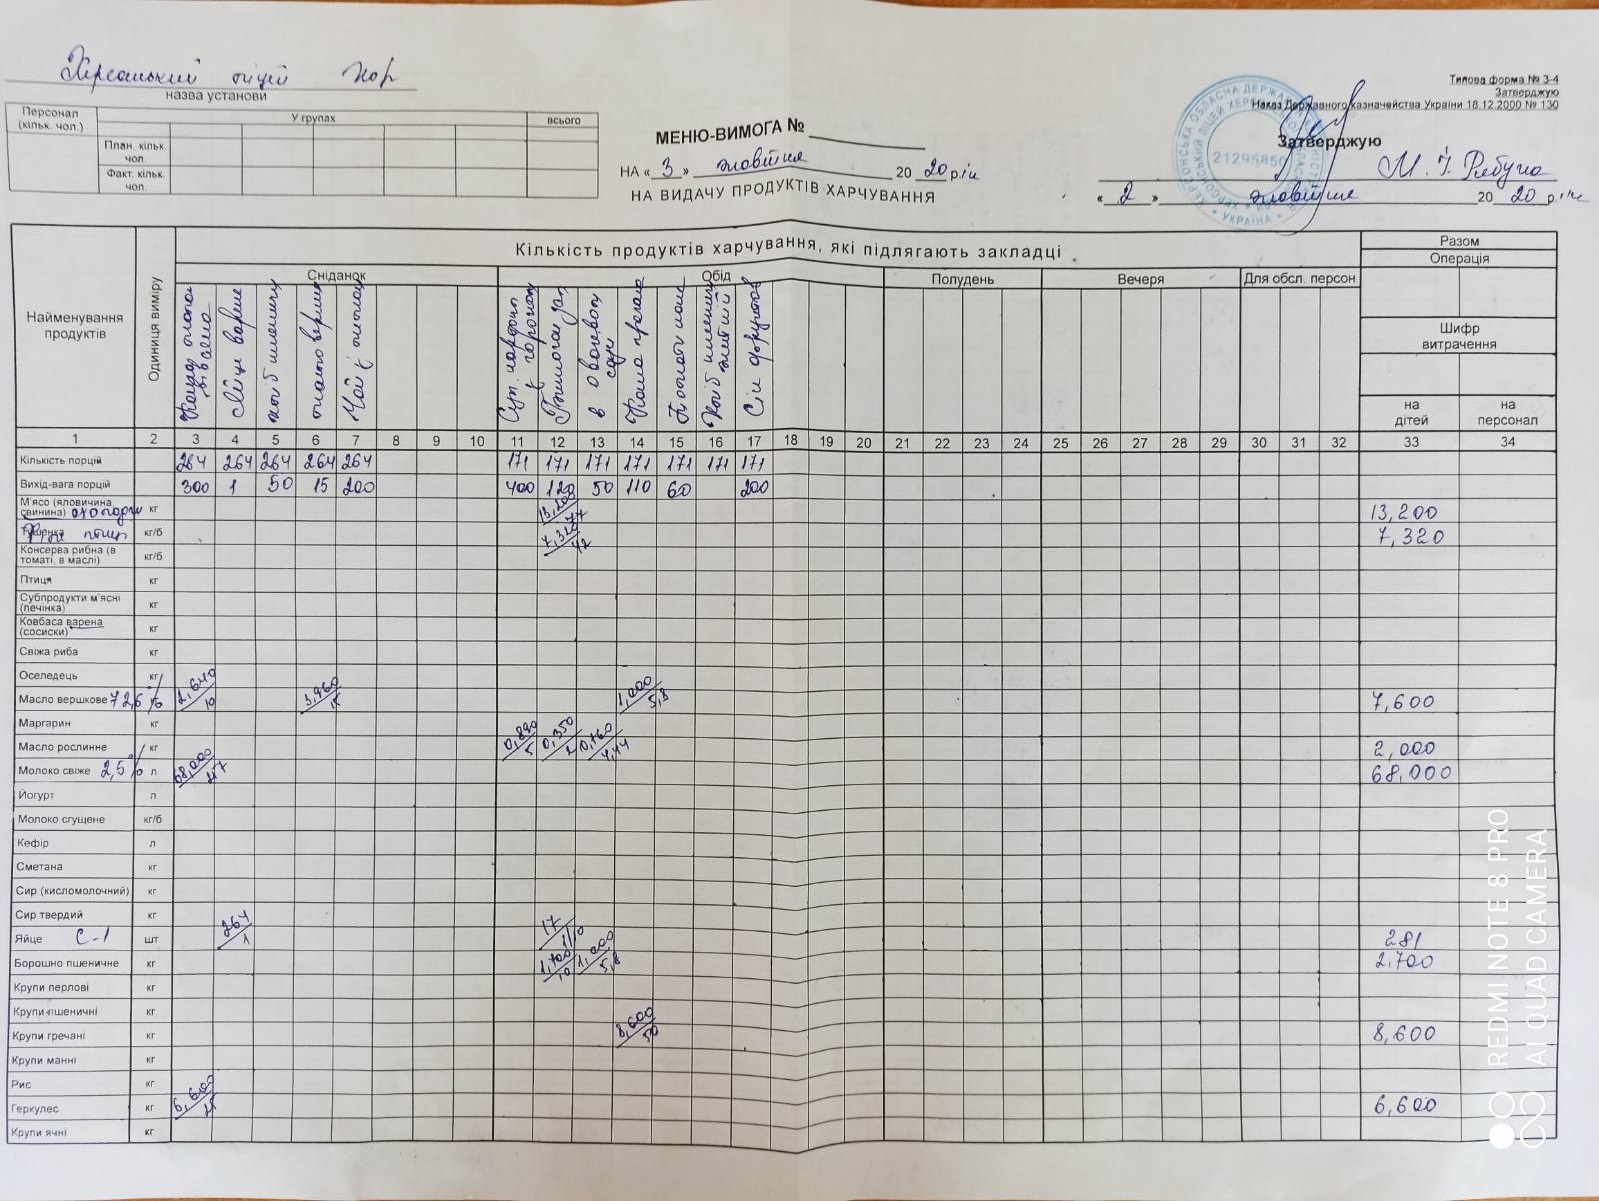 Херсонський ліцей ХОР
назва установи
Типова форма № З-4
Затверджую
Наказ Державного казначейства України 18.12.2000 № 130
Персонал (кільк. чол.)
У групах
всього
План. кільк. чол.
Факт. кільк. чол.
МЕНЮ-ВИМОГА №
НА « 3 » жовтня 20 20 р.
НА ВИДАЧУ ПРОДУКТІВ ХАРЧУВАННЯ
Затверджую
« 2 » жовтня 20 20 р.
21295850
УКРАЇНА
Найменування продуктів
Одиниця виміру
Кількість продуктів харчування, які підлягають закладці
Разом
Операція
Сніданок
Обід
Полудень
Вечеря
Для обсл. персон.
Шифр витрачення
на дітей
на персонал
Яйце варене
масло вершк
Чай з
Суп
з горохом
в
Каша гречана
Сік фруктов
1 2 3 4 5 6 7 8 9 10 11 12 13 14 15 16 17 18 19 20 21 22 23 24 25 26 27 28 29 30 31 32 33 34
Кількість порцій 264 264 264 264 264 171 171 171 171 171 171 171
Вихід-вага порцій 300 1 50 15 200 400 120 50 110 60 200
М'ясо (яловичина, свинина) кг 13,200 77 13,200
кг/б 7,320 42 7,320
Консерва рибна (в томаті, в маслі) кг/б
Птиця кг
Субпродукти м'ясні (печінка) кг
Ковбаса варена (сосиски) кг
Свіжа риба кг
Оселедець кг
Масло вершкове 72,6 % 2,640 10 3,960 15 1,000 5,8 7,600
Маргарин кг
Масло рослинне кг 0,890 5 0,350 2 0,760 4,44 2,000
Молоко свіже 2,5% л 68,000 257 68,000
Йогурт л
Молоко сгущене кг/б
Кефір л
Сметана кг
Сир (кисломолочний) кг
Сир твердий кг
Яйце С-1 шт 264 1 17 1/10 281
Борошно пшеничне кг 1,700 10 1,000 5,8 2,700
Крупи перлові кг
Крупи пшеничні кг
Крупи гречані кг 8,600 50 8,600
Крупи манні кг
Рис кг
Геркулес кг 6,600 25 6,600
Крупи ячні кг
REDMI NOTE 8 PRO
AI QUAD CAMERA